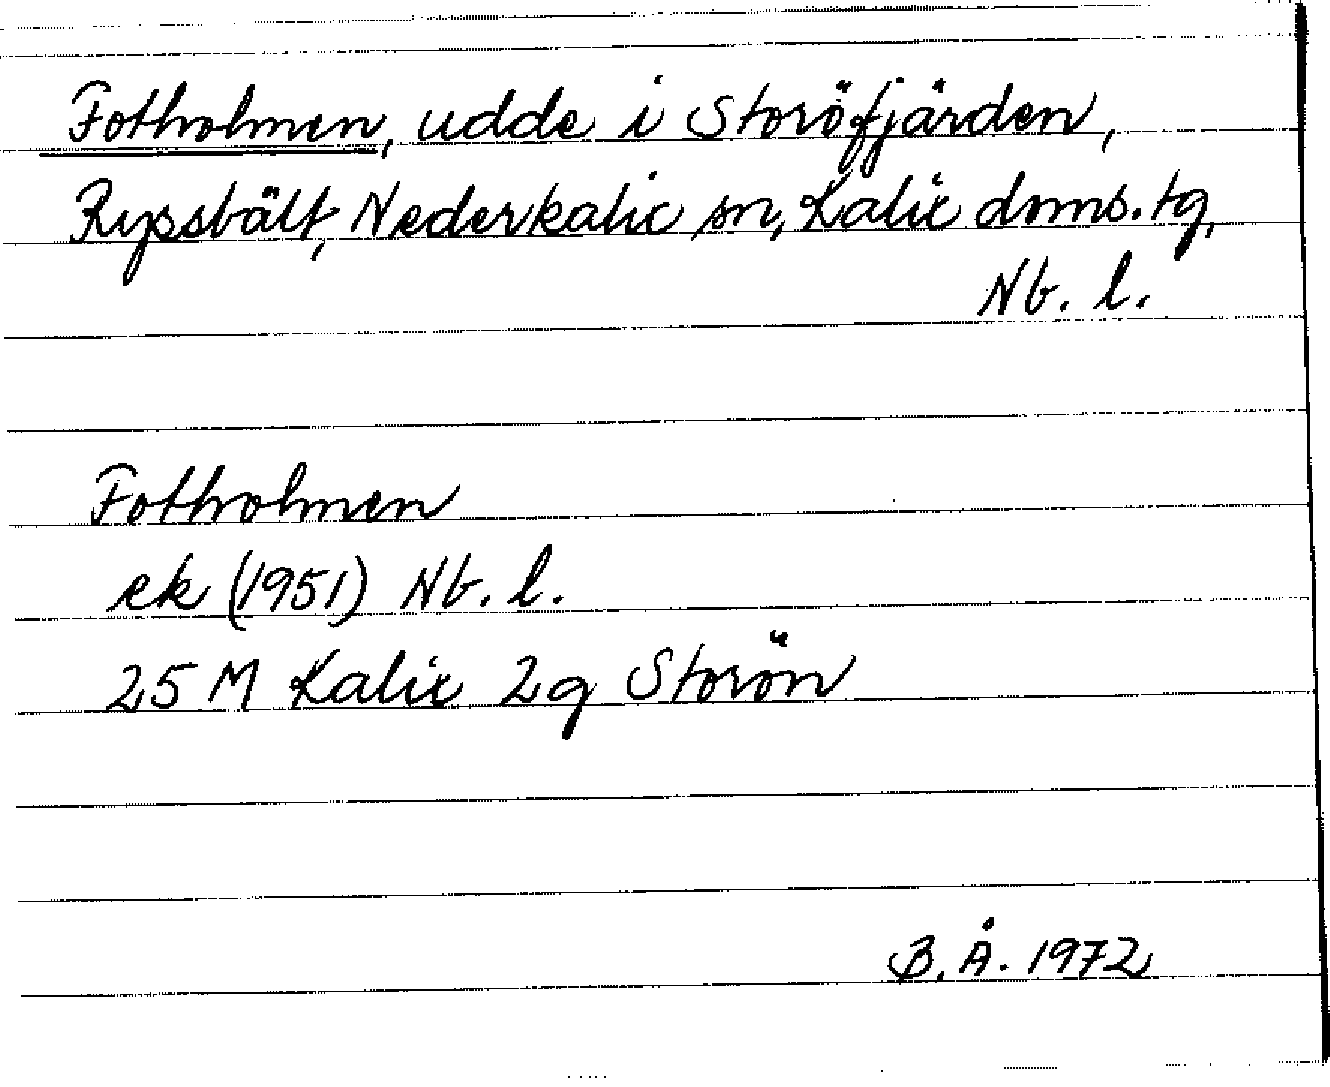 Fotholmen, udde i Storöfjärden,
Ryssbält, Nederkalix sn, Kalix doms.tg,
Nb. l.
Fotholmen
ek (1951) Nb. l.
25 M Kalix 2g Storön
B. Å. 1972